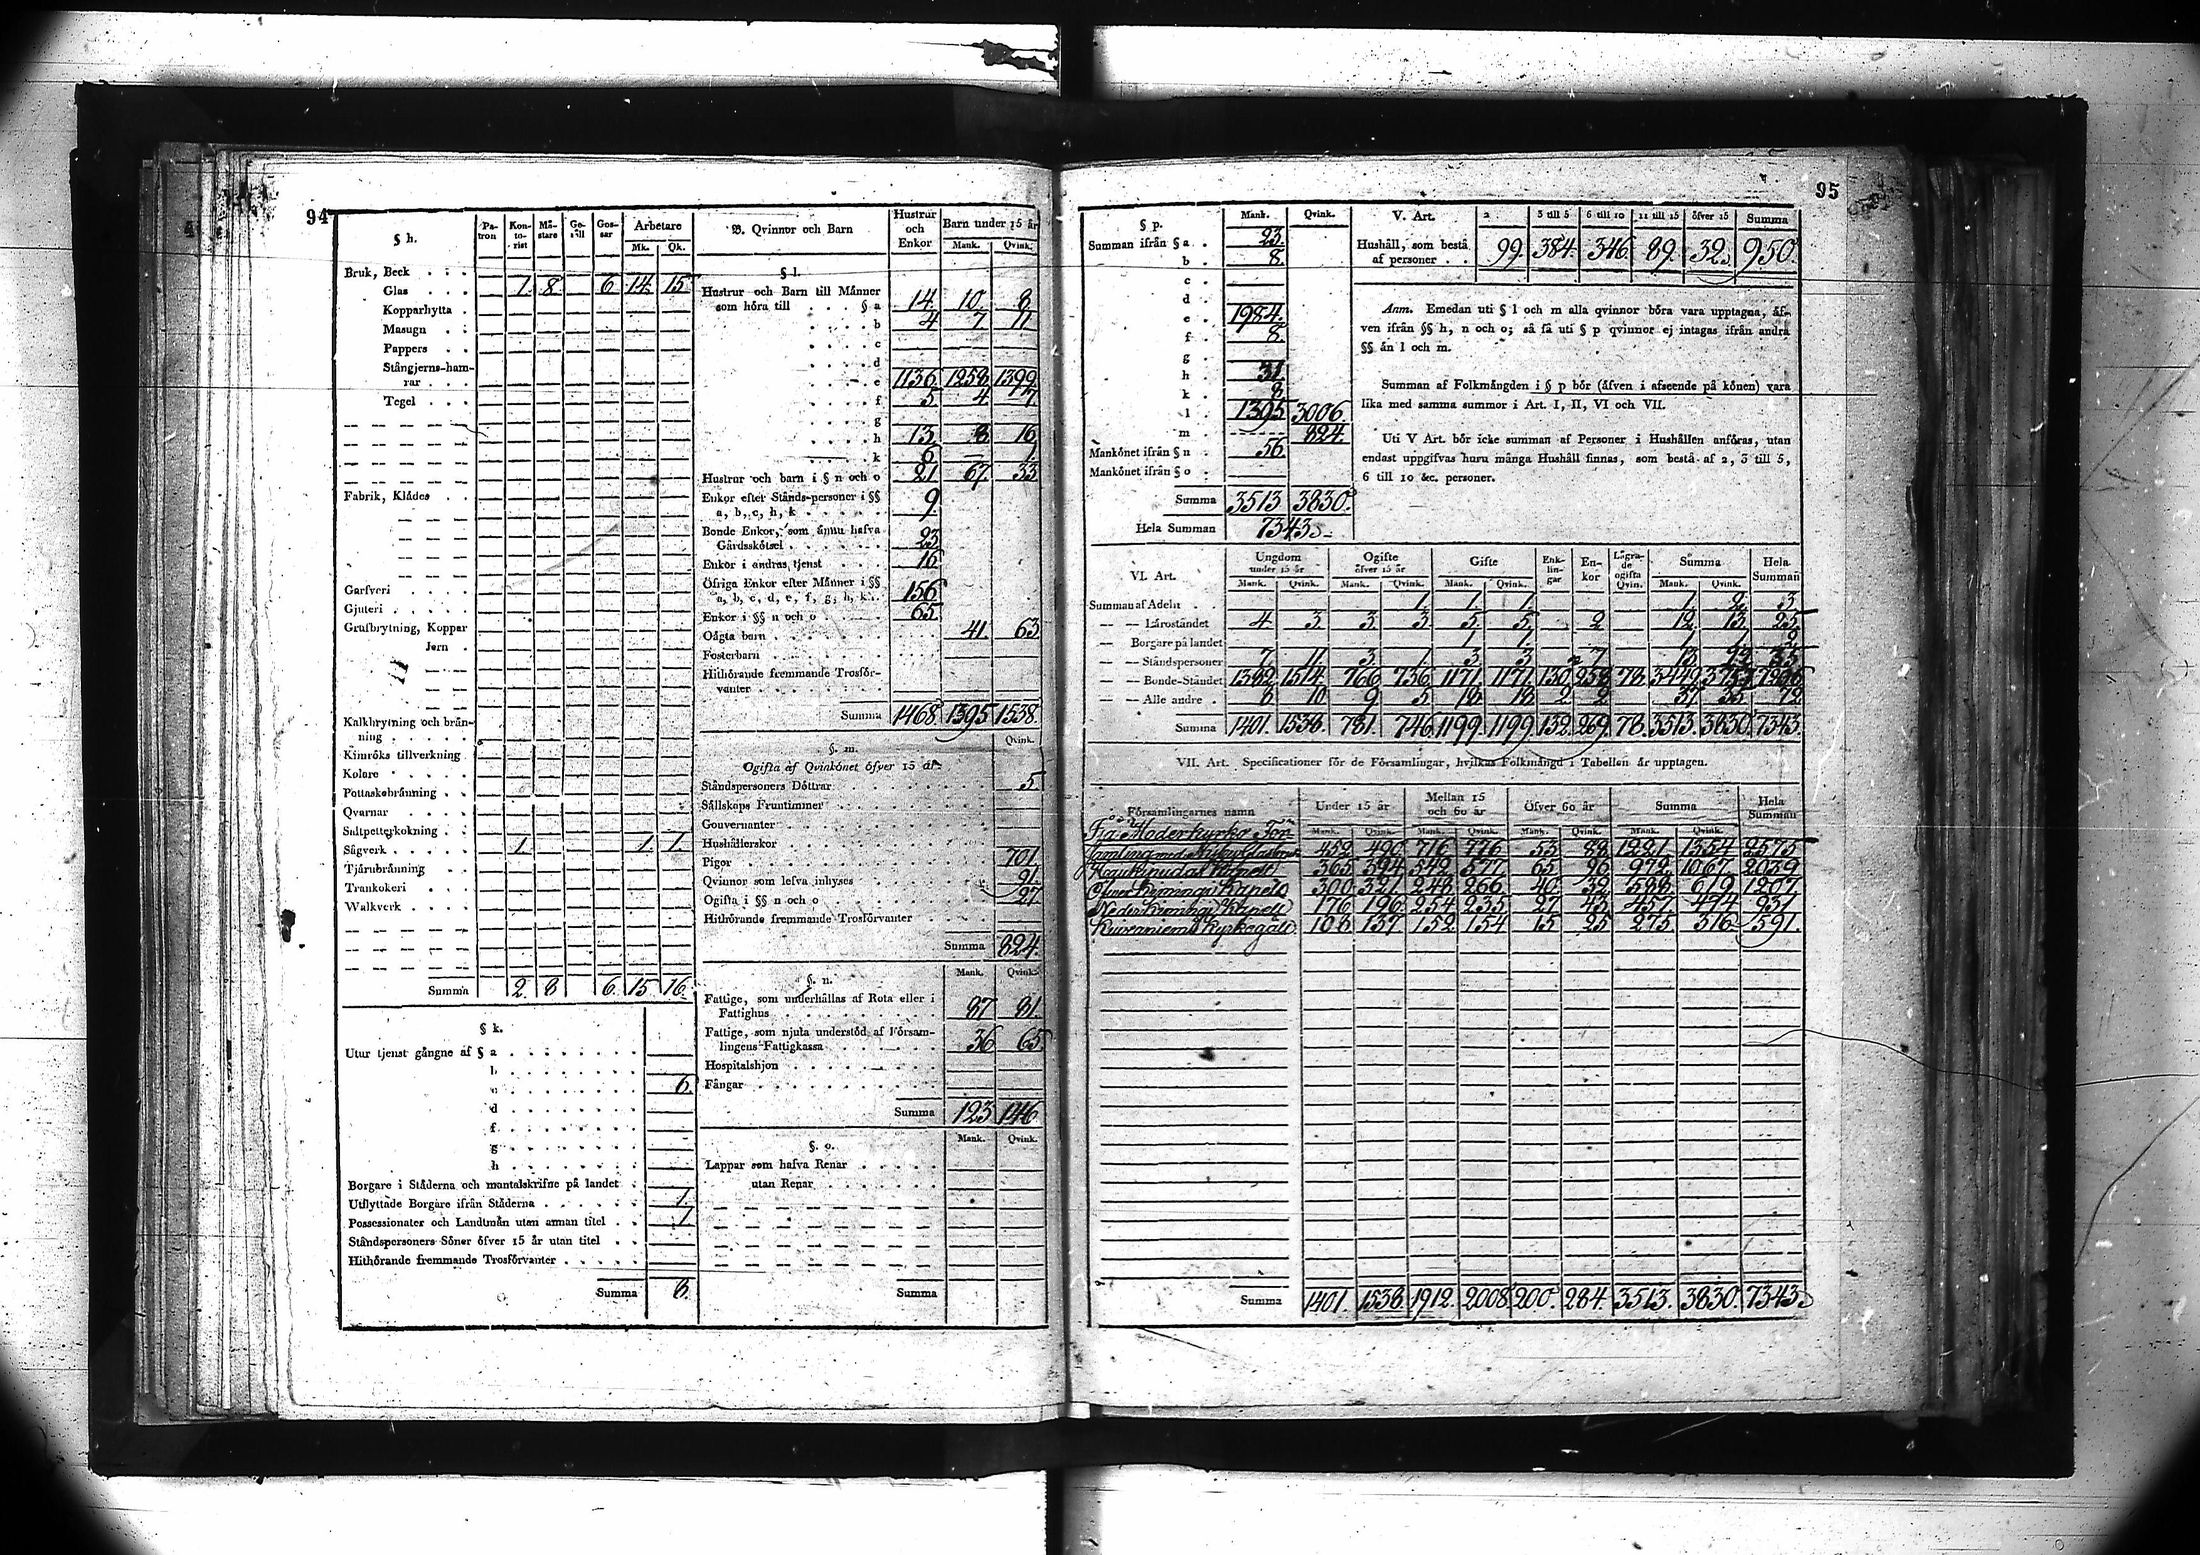 94
§ h.
Pa-tron Kon-to-rist Må-stare Ge-såll Gos-sar Arbetare
Mk. Qk.
Bruk, Beck
Glas 1. 8. 6 14. 15
Kopparhytta
Masugn
Pappers
Stångjerns-ham-
rar
Tegel
Fabrik, Klådes
Garfveri
Gjuteri
Grufbrytning, Koppar
Jern
Kalkbrytning och brän-
ning
Kimröks tillverkning
Kolare
Pottaskebränning
Qvarnar
Saltpetterkokning
Sågverk 1. 1 1.
Tjärubränning
Trankokeri
Walkverk
Summa 2. 8 6. 15 16.
§ k.
Utur tjenst gångne af § a
b
c 6.
d
f
g
h
Borgare i Städerna och mantalskrifne på landet
Utflyttade Borgare ifrån Städerna 1.
Possessionater och Landtmån utan annan titel 1
Ståndspersoners Söner öfver 15 år utan titel
Hithörande fremmande Trosförvanter
Summa 8.
B. Qvinnor och Barn
Hustrur och Enkor
Barn under 15 år
Mank. Qvink.
§ l.
Hustrur och Barn till Männer
som höra till § a 14. 10. 8
b 4 7 11
c
d
e 1136. 1258. 1399.
f 5. 4. 7
g
h 13. 8 16
k 6 — 1
Hustrur och barn i § n och o 21 67. 33
Enkor efter Stånds-personer i §§
a, b, c, h, k 9
Bonde Enkor, som ännu hafva
Gårdsskötsel 23
Enkor i andras tjenst 16
Öfriga Enkor efter Männer i §§
a, b, c, d, e, f, g, h, k 156
Enkor i §§ n och o 65
Oägta barn 41. 63
Fosterbarn
Hithörande fremmande Trosför-
vanter
Summa 1468. 1395 1538.
§. m. Qvink.
Ogifta af Qvinkönet öfver 15 år
Ståndspersoners Döttrar 5.
Sällskaps Fruntimmer
Gouvernanter
Hushållerskor
Pigor 701
Qvinnor som lefva inhyses 91
Ogifta i §§ n och o 27
Hithörande fremmande Trosförvanter
Summa 824.
§. n. Mank. Qvink.
Fattige, som underhållas af Rota eller i
Fattighus 87 81.
Fattige, som njuta understöd af Församlingens Fattigkassa 36 65.
Hospitalshjon
Fångar
Summa 123 146
§. o. Mank. Qvink.
Lappar som hafva Renar
utan Renar
Summa
95
§ p. Mank. Qvink.
Summan ifrån § a 23.
b 8.
c
d
e 1984.
f 8.
g
h 31.
k 8
l 1395 3006
m 824.
Mankönet ifrån § n 56
Mankönet ifrån § o
Summa 3513 3830.
Hela Summan 7343
V. Art. 2 3 till 5 6 till 10 11 till 15 öfver 15 Summa
Hushåll, som bestå
af personer 99. 384. 346. 89. 32. 950.
Anm. Emedan uti § l och m alla qvinnor böra vara upptagna, äf-
ven ifrån §§ h, n och o; så få uti § p qvinnor ej intagas ifrån andra
§§ än l och m.
Summan af Folkmängden i § p bör (äfven i afseende på könen) vara
lika med samma summor i Art. I, II, VI och VII.
Uti V Art. bör icke summan af Personer i Hushållen anföras, utan
endast uppgifvas huru många Hushåll finnas, som bestå af 2, 3 till 5,
6 till 10 &c. personer.
VI. Art. Ungdom under 15 år Ogifte öfver 15 år Gifte Enk-lin-gar En-kor Lägra-de ogifta Qvin. Summa Hela Summan
Mank. Qvink. Mank. Qvink. Mank. Qvink. Mank. Qvink.
Summan af Adeln 1. 1. 1. 1. 2. 3
— — Läroståndet 4. 3 3. 3. 5 5. 2 12. 13. 25
— Borgare på landet 1 1 1. 1 2
— — Ståndspersoner 7 11 3 1. 3 3 7 13 22 35
— — Bonde-Ståndet 1382. 1514. 766 736. 1171. 1171. 130. 258. 78. 3449. 3757 7206
— — Alle andre 8 10 9 5 18 18 2 2 37 35 72
Summa 1401. 1538. 781. 746. 1199. 1199. 132. 269. 78. 3513. 3830. 7343.
VII. Art. Specificationer för de Församlingar, hvilkas Folkmängd i Tabellen är upptagen.
Församlingarnes namn Under 15 år Mellan 15 och 60 år Öfver 60 år Summa Hela Summan
Mank. Qvink. Mank. Qvink. Mank. Qvink. Mank. Qvink.
Moderkyrko För-
samling med 452 490 716 776 53 88 1221 1354 2575
Kapell 365 394 542 577 65 96 972 1067 2039
Kapell 300 321 248 266 40 32 588 619 1207
Neder Kapell 176 196 254 235 27 43 457 474 931
Kyrkogäld 108 137 152 154 15 25 275 316 591.
Summa 1401. 1538. 1912. 2008 200. 284. 3513. 3830. 7343